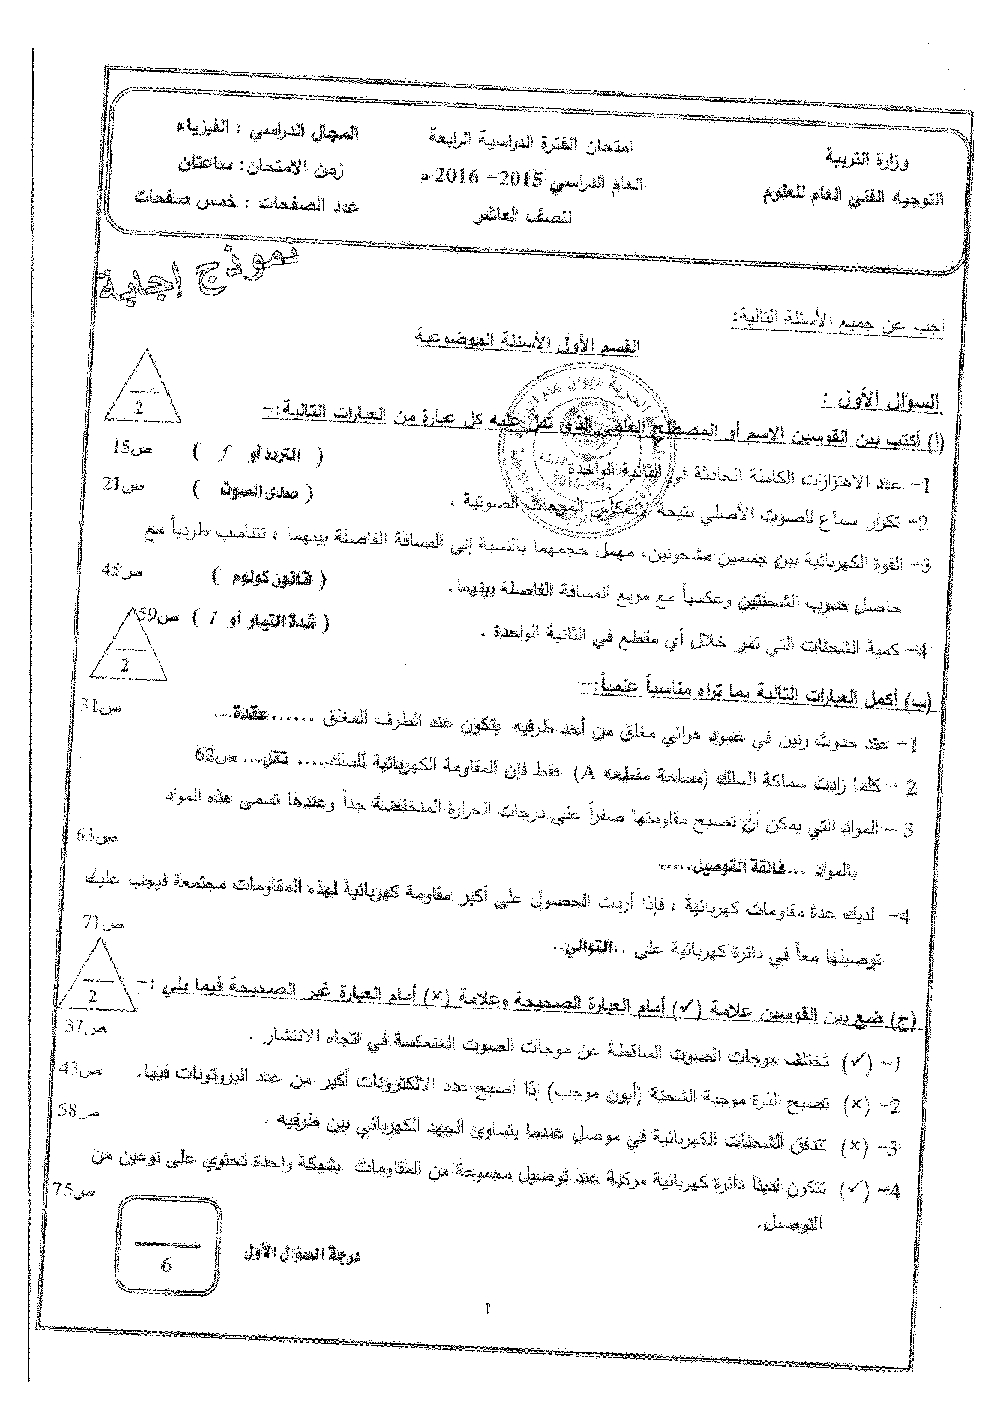 وزارة التربية
التوجيه الفني العام للعلوم
امتحان الفترة الدراسية الرابعة
العام الدراسي 2015– 2016 م
للصف العاشر
المجال الدراسي : الفيزياء
زمن الامتحان: ساعتان
عدد الصفحات : خمس صفحات
نموذج إجابة
أجب عن جميع الأسئلة التالية:
القسم الأول الأسئلة الموضوعية
السؤال الأول :
(أ) أكتب بين القوسين الاسم أو المصطلح العلمي الذي تدل عليه كل عبارة من العبارات التالية:–
2
1– عدد الاهتزازت الكاملة الحادثة في الثانية الواحدة ( التردد أو f ) ص15
2– تكرار سماع للصوت الأصلي نتيجة انعكاس الموجات الصوتية . ( صدى الصوت ) ص21
3– القوة الكهربائية بين جسمين مشحونين، مهمل حجمهما بالنسبة إلى المسافة الفاصلة بينهما ، تتناسب طردياً مع
حاصل ضرب الشحنتين وعكسياً مع مربع المسافة الفاصلة بينهما . ( قانون كولوم ) ص45
4– كمية الشحنات التي تمر خلال أي مقطع في الثانية الواحدة . ( شدة التيار أو I ) ص59
2
(ب) أكمل العبارات التالية بما تراه مناسباً علمياً:–
1– عند حدوث رنين في عمود هوائي مغلق من أحد طرفيه يتكون عند الطرف المغلق ......عقدة... ص31
2 – كلما زادت سماكة السلك (مساحة مقطعه A) فقط فإن المقاومة الكهربائية للسلك..... تقل... ص62
3 – المواد التي يمكن أن تصبح مقاومتها صفراً على درجات الحرارة المنخفضة جداً وعندها تسمى هذه المواد
بالمواد ...فائقة التوصيل..... ص63
4– لديك عدة مقاومات كهربائية ، فإذا أردت الحصول على أكبر مقاومة كهربائية لهذه المقاومات مجتمعة فيجب عليك
توصيلها معاً في دائرة كهربائية على ..التوالي.. ص71
2
(ج) ضع بين القوسين علامة (✓) أمام العبارة الصحيحة وعلامة (×) أمام العبارة غير الصحيحة فيما يلي :–
1– (✓) تختلف موجات الصوت الساقطة عن موجات الصوت المنعكسة في اتجاه الانتشار . ص37
2– (×) تصبح الذرة موجبة الشحنة (أيون موجب) إذا أصبح عدد الالكترونات أكبر من عدد البروتونات فيها. ص43
3– (×) تتدفق الشحنات الكهربائية في موصل عندما يتساوى الجهد الكهربائي بين طرفيه . ص58
4– (✓) تتكون لدينا دائرة كهربائية مركبة عند توصيل مجموعة من المقاومات بشبكة واحدة تحتوي على نوعين من
التوصيل. ص75
درجة السؤال الأول
6
1